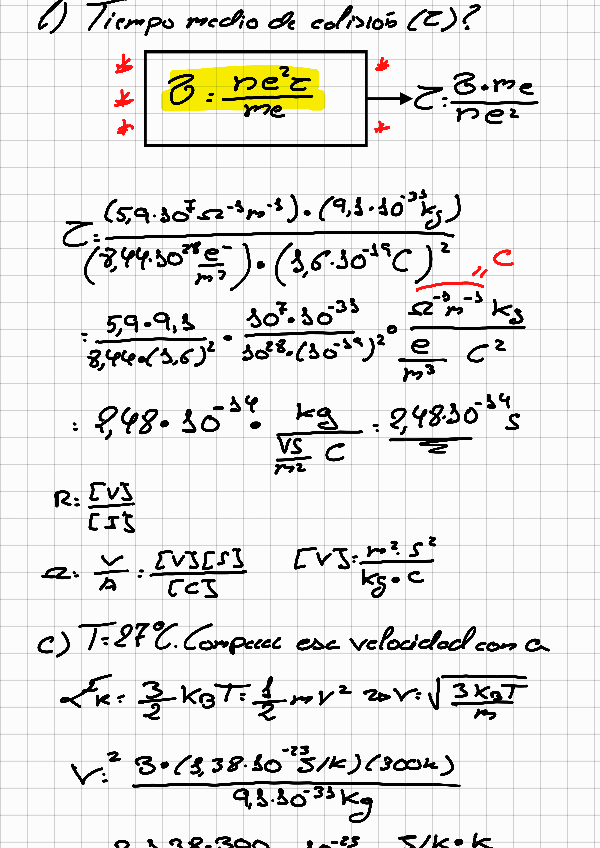 b) Tiempo medio de colisión (τ)?
* σ = ne²τ/me * → τ = σ·me/ne²
τ = (5,9·10⁷Ω⁻¹m⁻¹)·(9,1·10⁻³¹kg) / (8,44·10²⁸ e⁻/m³)·(1,6·10⁻¹⁹C)²
= 5,9·9,1/8,44·(1,6)² · 10⁷·10⁻³¹/10²⁸·(10⁻¹⁹)² · Ω⁻¹m⁻¹ kg / e/m³ C² " C
= 2,48·10⁻¹⁴ · kg / VS/m² C = 2,48·10⁻¹⁴ s
R = [V]/[I]
Ω = V/A = [V][S]/[C] [V] = m²·s²/kg·C
c) T=27°C. Comparar esa velocidad con a
= 3/2 KBT = 1/2 mV² ⇒ V = √3KBT/m
V² = 3·(1,38·10⁻²³J/K)(300K) / 9,1·10⁻³¹Kg